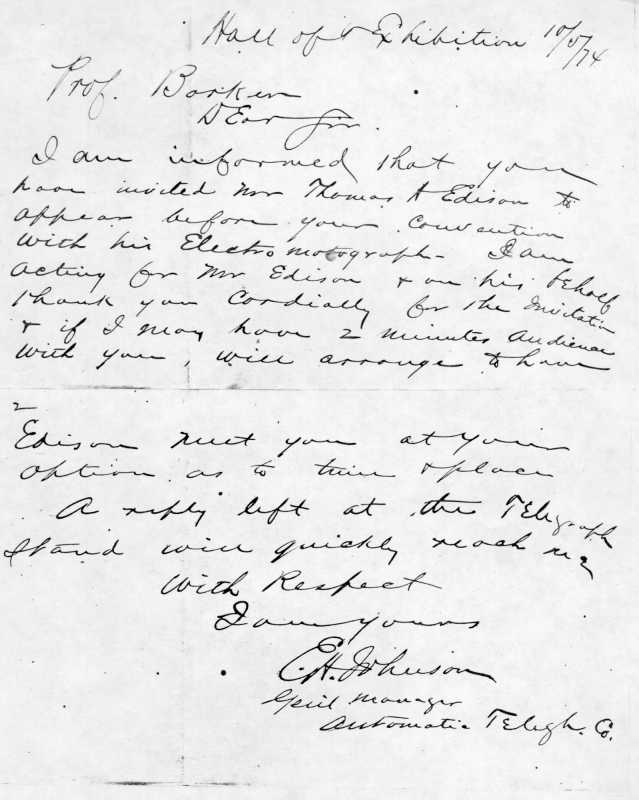 Hall of Exhibition 10/5/74
Prof. Barker
Dear Sir.
I am informed that you
have invited Mr Thomas A Edison to
appear before your Convention
with his Electro motograph - I am
acting for Mr Edison & on his behalf
thank you Cordially for the Invitation
& if I may have 2 minutes Audience
with you, will arrange to have
2
Edison meet you at your
option as to time & place
A reply left at the Telegraph
Stand will quickly reach me
With Respect
I am yours
E.H. Johnson
Genl Manager
Automatic Telegh. Co.